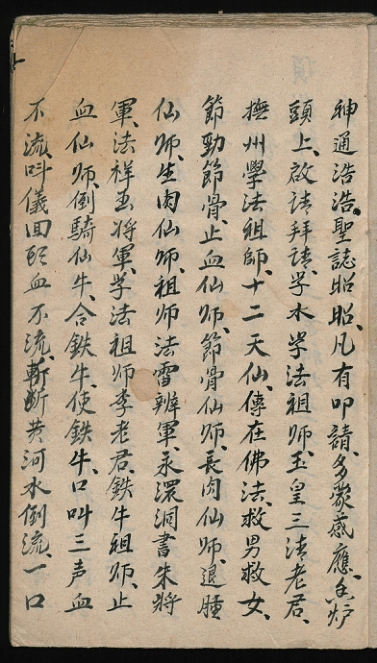 神通浩浩、聖誌昭昭、凡有叩請、多蒙感應、香炉
頭上、啟請拜請、学水学法祖师、玉皇三清老君、
撫州學法祖師、十二天仙、傳在佛法、救男救女、
節勁節骨、止血仙师、節骨仙师、長肉仙师、退腫
仙师、生肉仙师、祖师法雷辨軍、永濵洞書朱將
軍、法祥玉将軍、学法祖师李老君、鉄牛祖师、止
血仙师、倒騎仙牛、合鉄牛、使鉄牛、口叫三声血
不流、叫儀回頭血不流、斬断黄河水倒流、一口